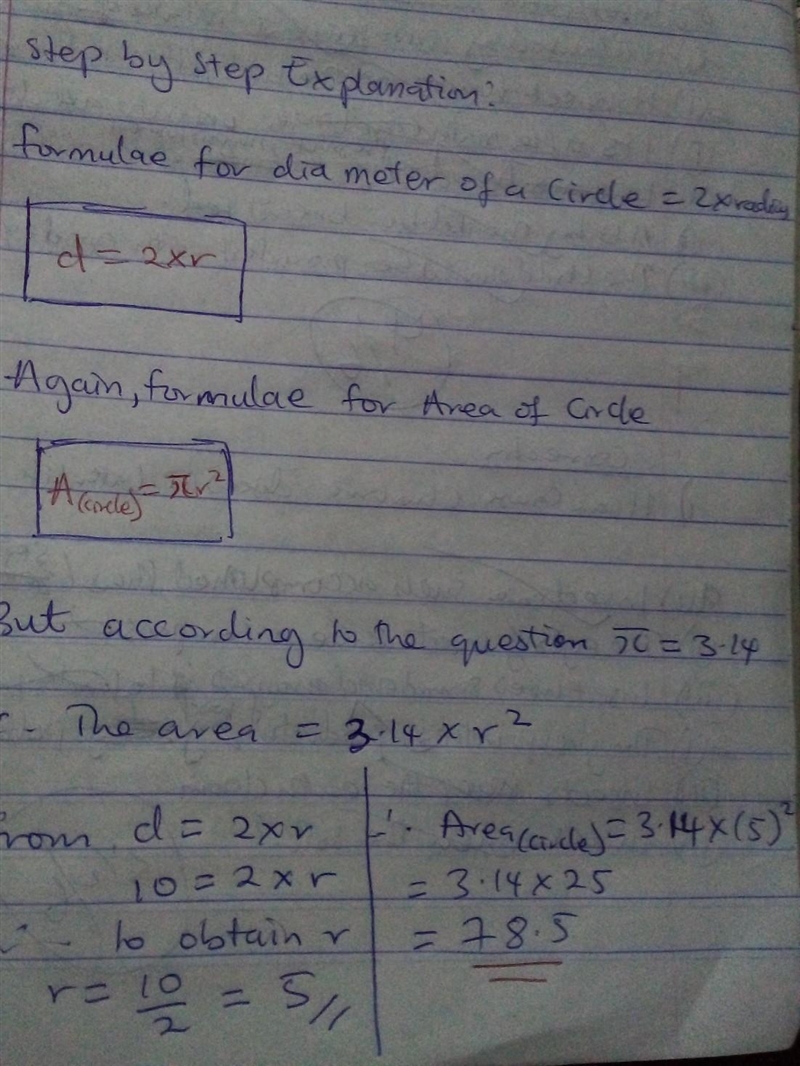 Step by step Explanation:
formulae for diameter of a Circle = 2x radius
d = 2xr
Again, formulae for Area of Circle
A(circle) = πr²
But according to the question π = 3.14
∴ The area = 3.14 x r²
from d = 2xr
10 = 2 x r
∴ to obtain r
r = 10/2 = 5//
∴ Area(circle) = 3.14 x (5)²
= 3.14 x 25
= 78.5